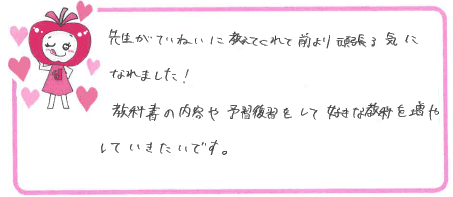 先生がていねいに教えてくれて前より頑張る気に
なれました!
教科書の内容や予習復習をして好きな教科を増や
していきたいです。